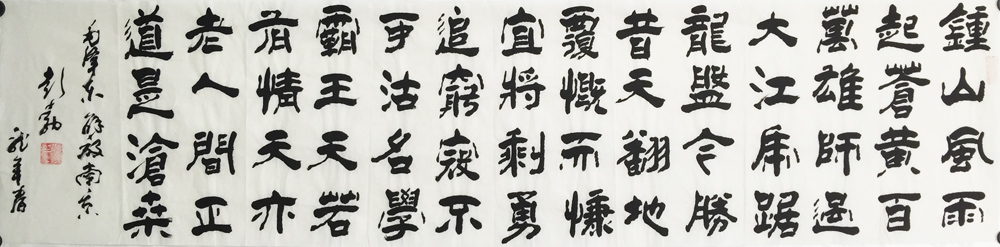 鍾山風雨
起蒼黃百
萬雄師過
大江虎踞
龍盤今勝
昔天翻地
覆慨而慷
宜將剩勇
追窮寇不
可沽名學
霸王天若
有情天亦
老人間正
道是滄桑
毛澤東解放南京
彭勃